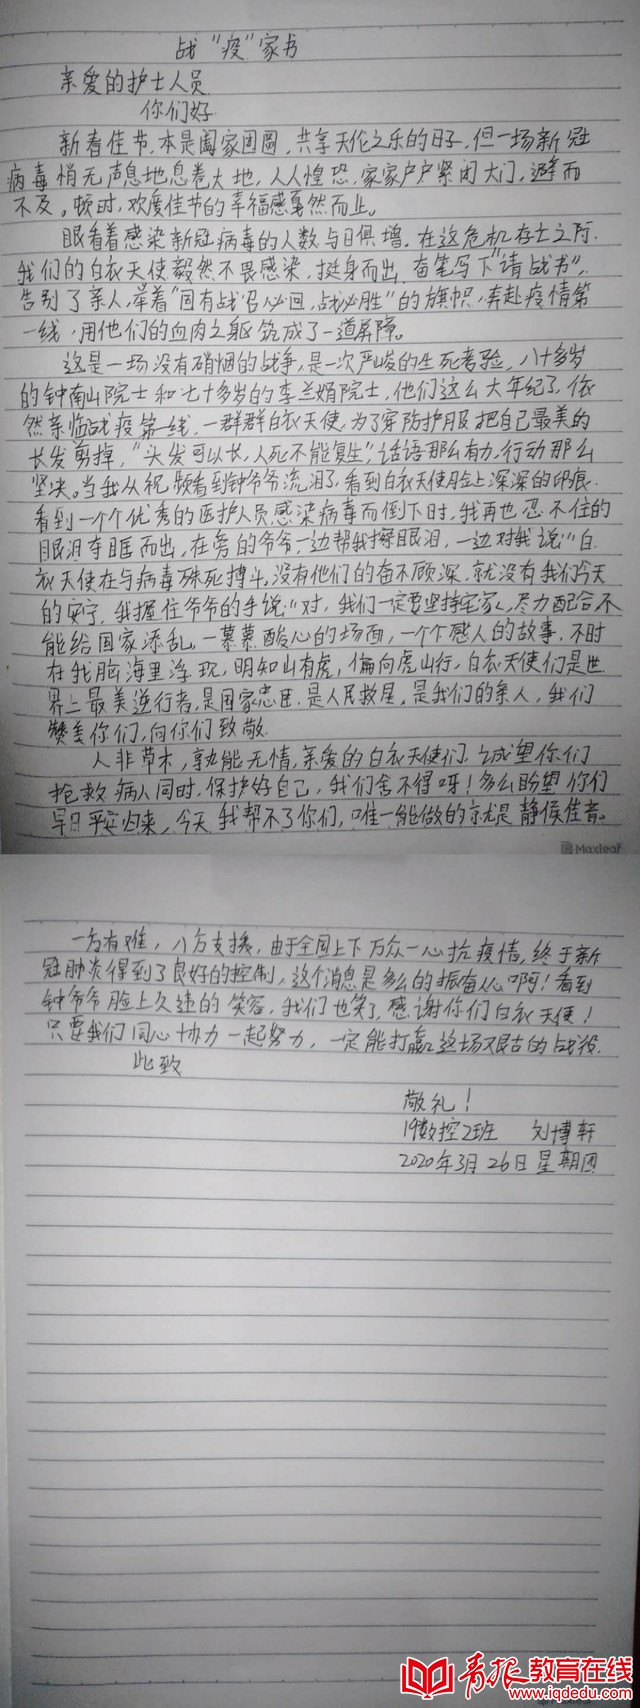 战“疫”家书
亲爱的护士人员
你们好
新春佳节,本是阖家团圆,共享天伦之乐的日子,但一场新冠
病毒悄无声息地息卷大地,人人惶恐,家家户户紧闭大门,避而
不及。顿时,欢度佳节的幸福感戛然而止。
眼看着感染新冠病毒的人数与日俱增,在这危机存亡之际,
我们的白衣天使毅然不畏感染,挺身而出,奋笔写下“请战书”,
告别了亲人,举着“国有战召必回,战必胜”的旗帜,奔赴疫情第
一线,用他们的血肉之躯筑成了一道屏障。
这是一场没有硝烟的战争,是一次严峻的生死考验,八十多岁
的钟南山院士和七十多岁的李兰娟院士,他们这么大年纪了,依
然亲临战疫第一线,一群群白衣天使,为了穿防护服把自己最美的
长发剪掉,“头发可以长,人死不能复生”,话语那么有力,行动那么
坚决。当我从视频看到钟爷爷流泪了,看到白衣天使脸上深深的印痕,
看到一个个优秀的医护人员感染病毒而倒下时,我再也忍不住的
眼泪夺眶而出,在旁的爷爷一边帮我擦眼泪,一边对我说:“白
衣天使在与病毒殊死搏斗,没有他们的奋不顾深,就没有我们今天
的安宁,我握住爷爷的手说:“对,我们一定要坚持宅家,尽力配合不
能给国家添乱,一幕幕酸心的场面,一个个感人的故事,不时
在我脑海里浮现,明知山有虎,偏向虎山行,白衣天使们是世
界上最美逆行者,是国家忠臣,是人民救星,是我们的亲人,我们
赞美你们,向你们致敬.
人非草木,孰能无情,亲爱的白衣天使们,诚望你们
抢救病人同时,保护好自己,我们舍不得呀!多么盼望你们
早日平安归来,今天我帮不了你们,唯一能做的就是静候佳音。
Maxleaf
一方有难,八方支援,由于全国上下万众一心抗疫情,终于新
冠肺炎得到了良好的控制,这个消息是多么的振奋人心啊!看到
钟爷爷脸上久违的笑容,我们也笑了,感谢你们白衣天使!
只要我们同心协力一起努力,一定能打赢这场艰苦的战役.
此致
敬礼!
19数控2班 刘博轩
2020年3月26日星期四
青报教育在线
www.iqdedu.com